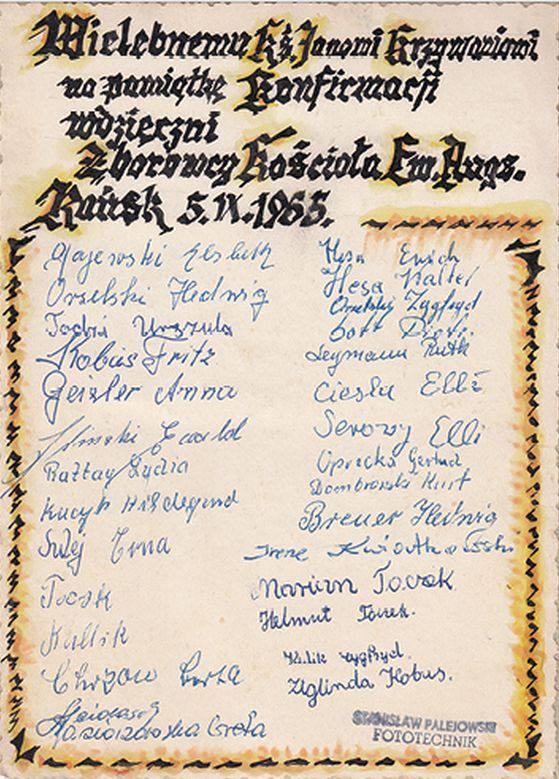 Wielebnemu Ks. Janowi Krzywoniowi
na pamiątkę Konfirmacji
wdzięczni
Zborowcy Kościoła Ew. Augs.
Rańsk 5.IX.1965.
Gajewski
Orzelski Hedwig
Urszula
Kobus Fritz
Geisler Anna
Ewald
Rattay Lydia
Kucyk Hildegard
Sulej Erna
Tocek
Kullik
Chrzon Berta
Greta
Hesa Erich
Hesa Walter
Orzelski Zygfryd
Piotr
Leymann Ruth
Ciesla Elli
Serowy Elli
Gertrud
Dombrowski Kurt
Breuer Hedwig
Irene
Marian Tocek
Helmut Tocek.
Zygfryd.
Zyglinda Kobus.
STANISŁAW PALEJOWSKI
FOTOTECHNIK